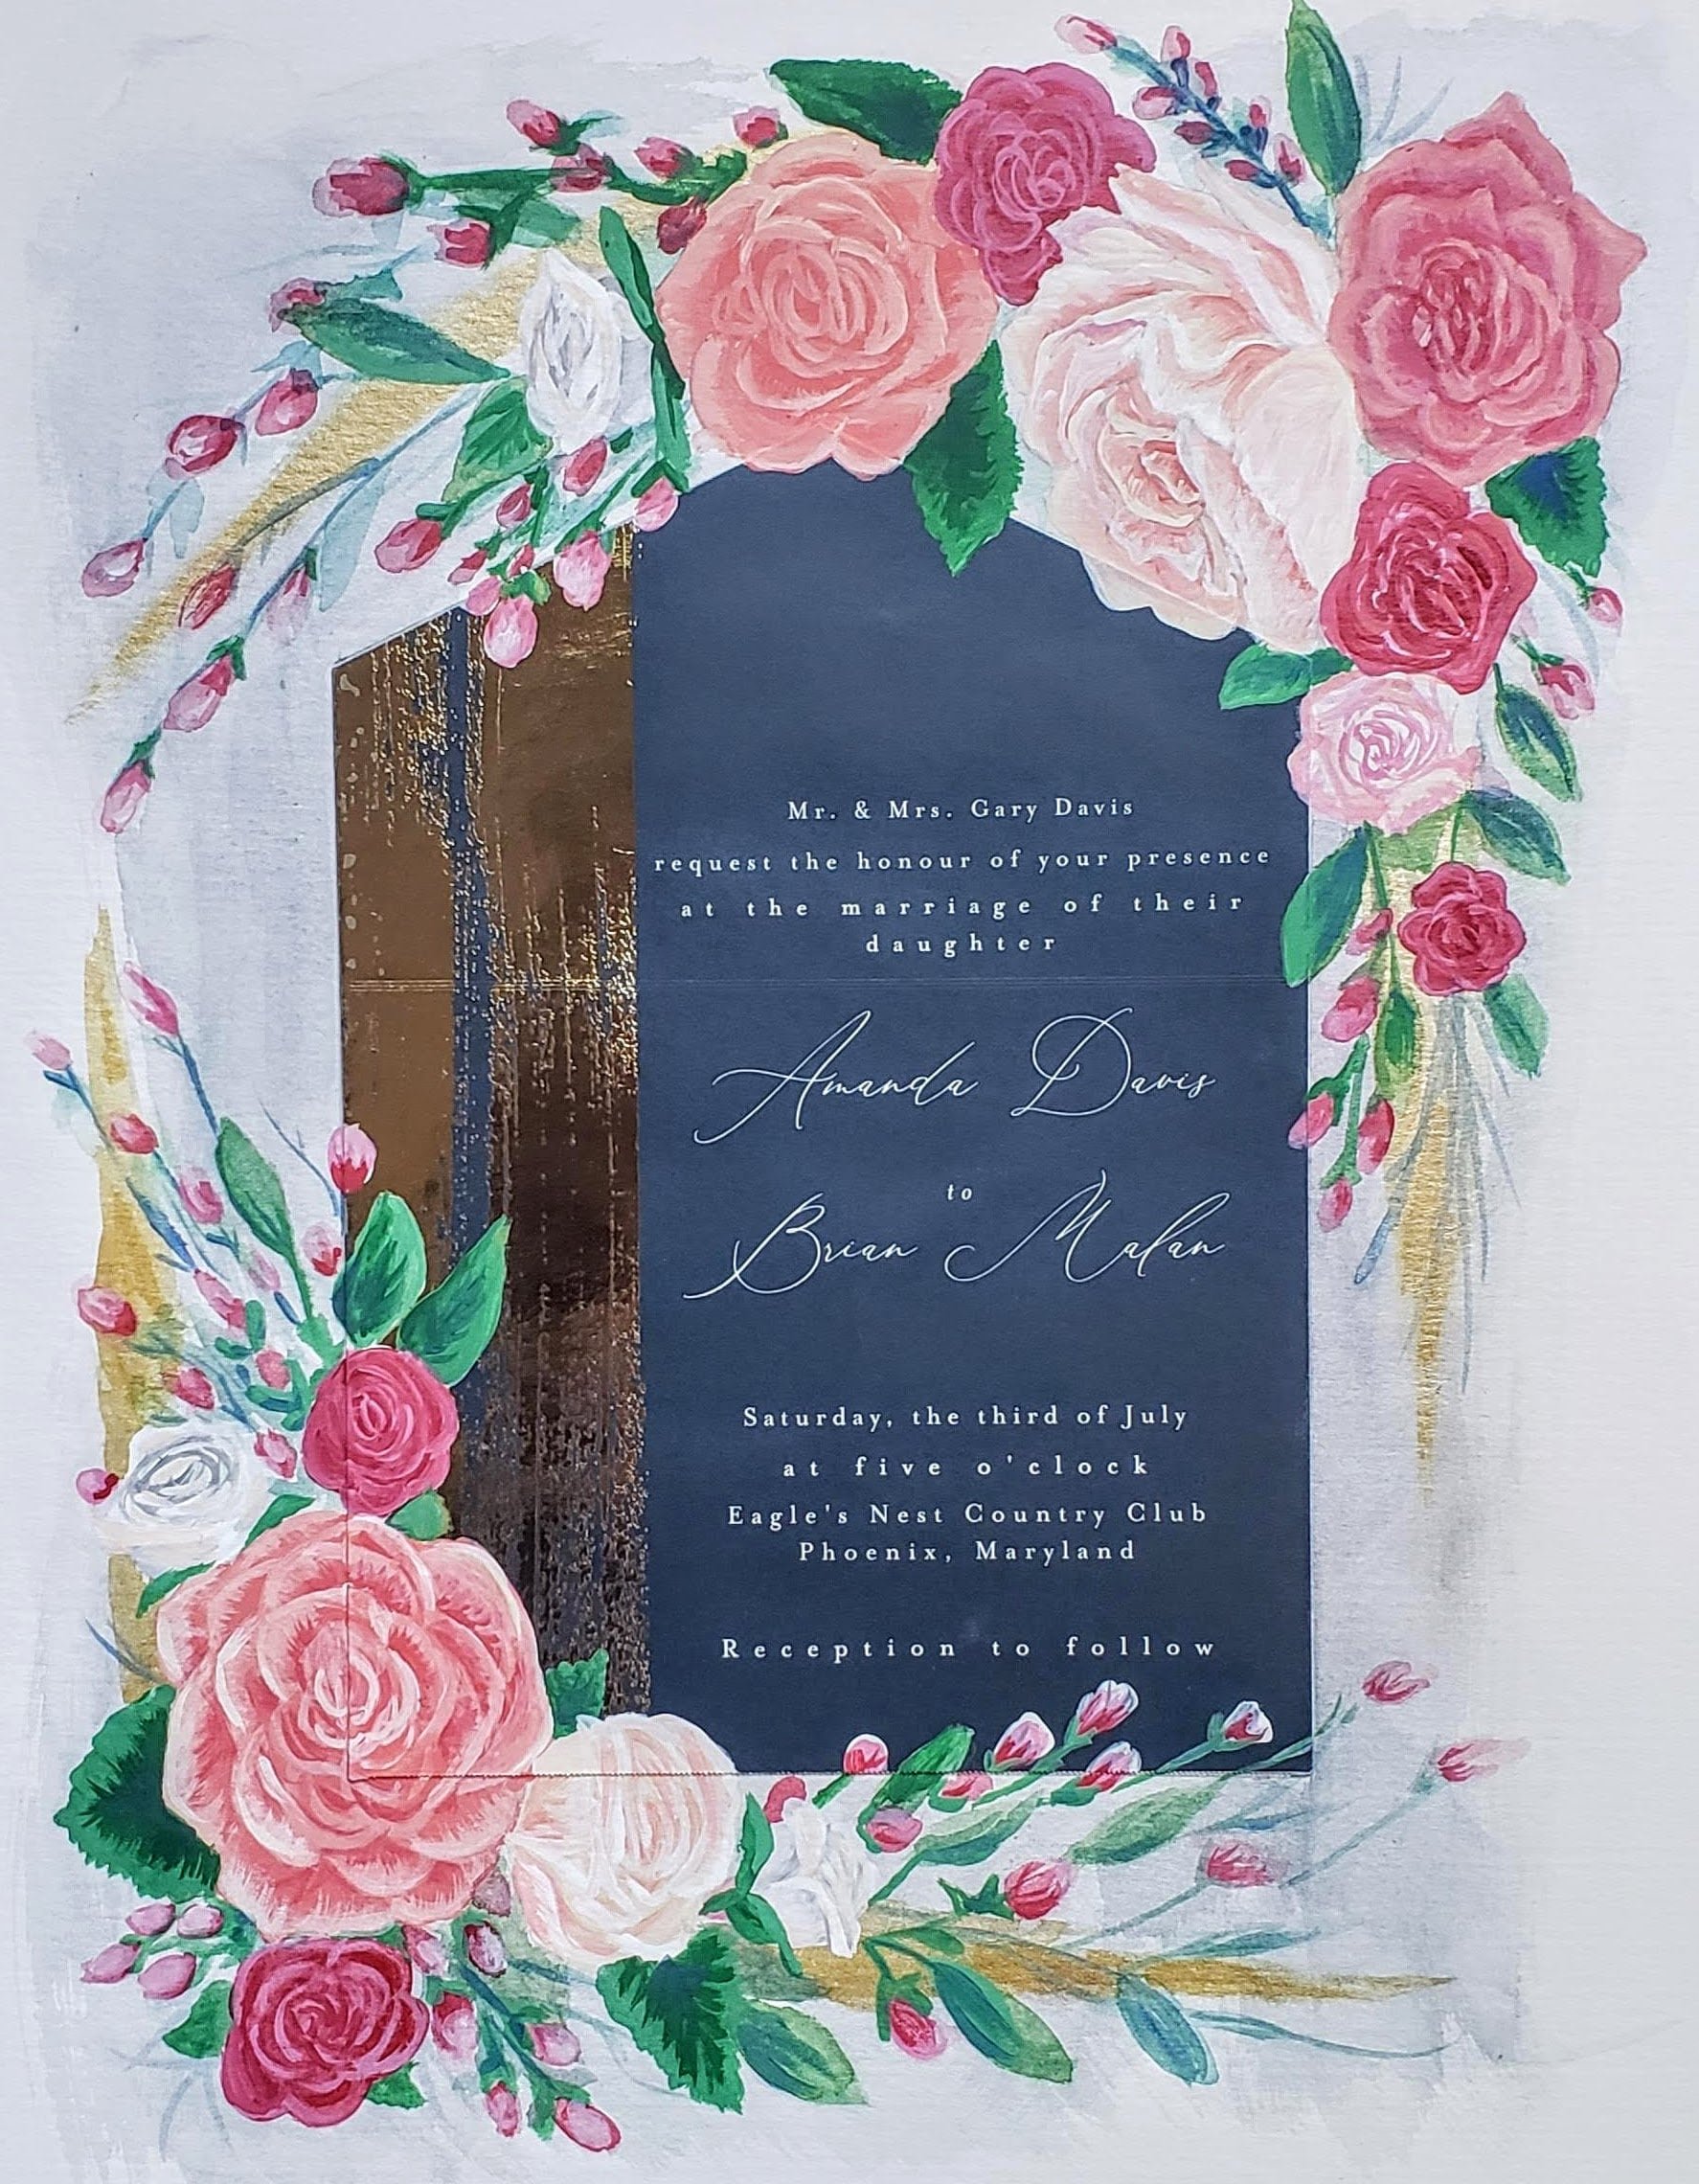 Mr. & Mrs. Gary Davis
request the honour of your presence
at the marriage of their
daughter
Amanda Davis
to
Brian Malan
Saturday, the third of July
at five o'clock
Eagle's Nest Country Club
Phoenix, Maryland
Reception to follow